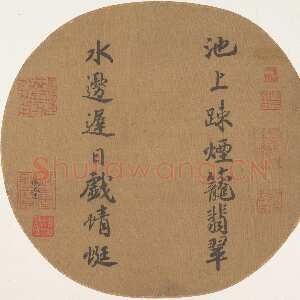 池上疎煙籠翡翠
水邊遲日戲蜻蜓
Shufawang.CN